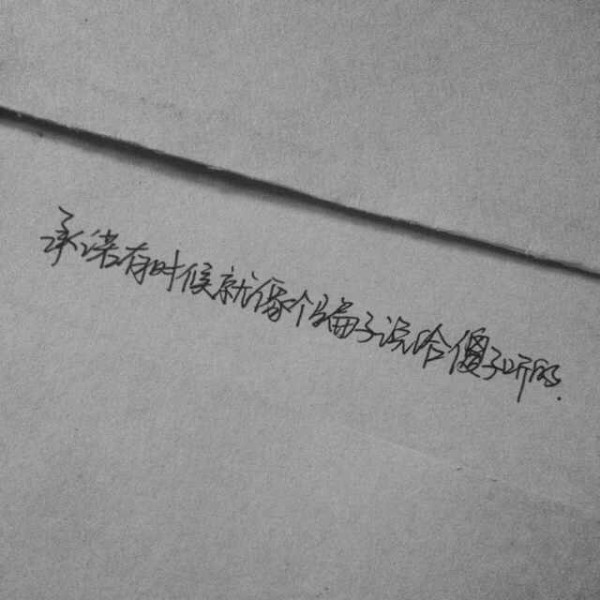 承诺有时候就像个骗子说给傻子听的.